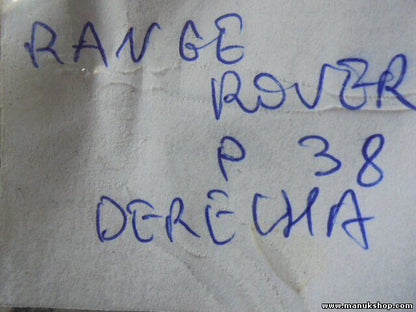 RANGE
ROVER
P 38
DERECHA
www.manukshop.com